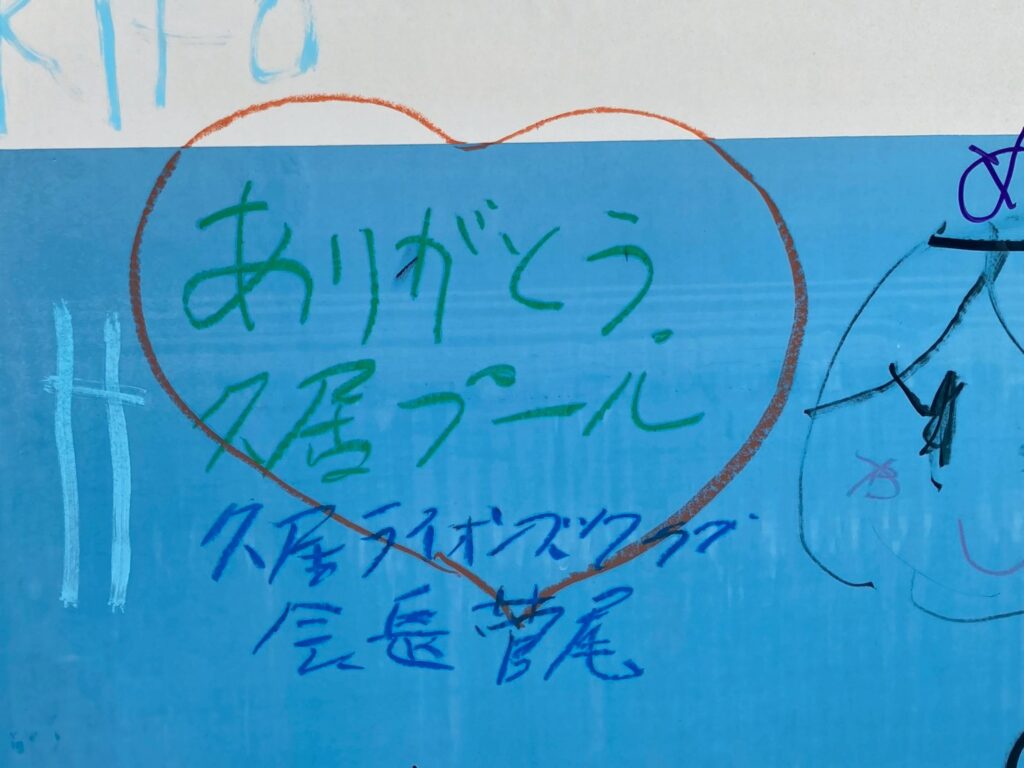 ありがとう。
久居プール
久居ライオンズクラブ
会長 菅尾